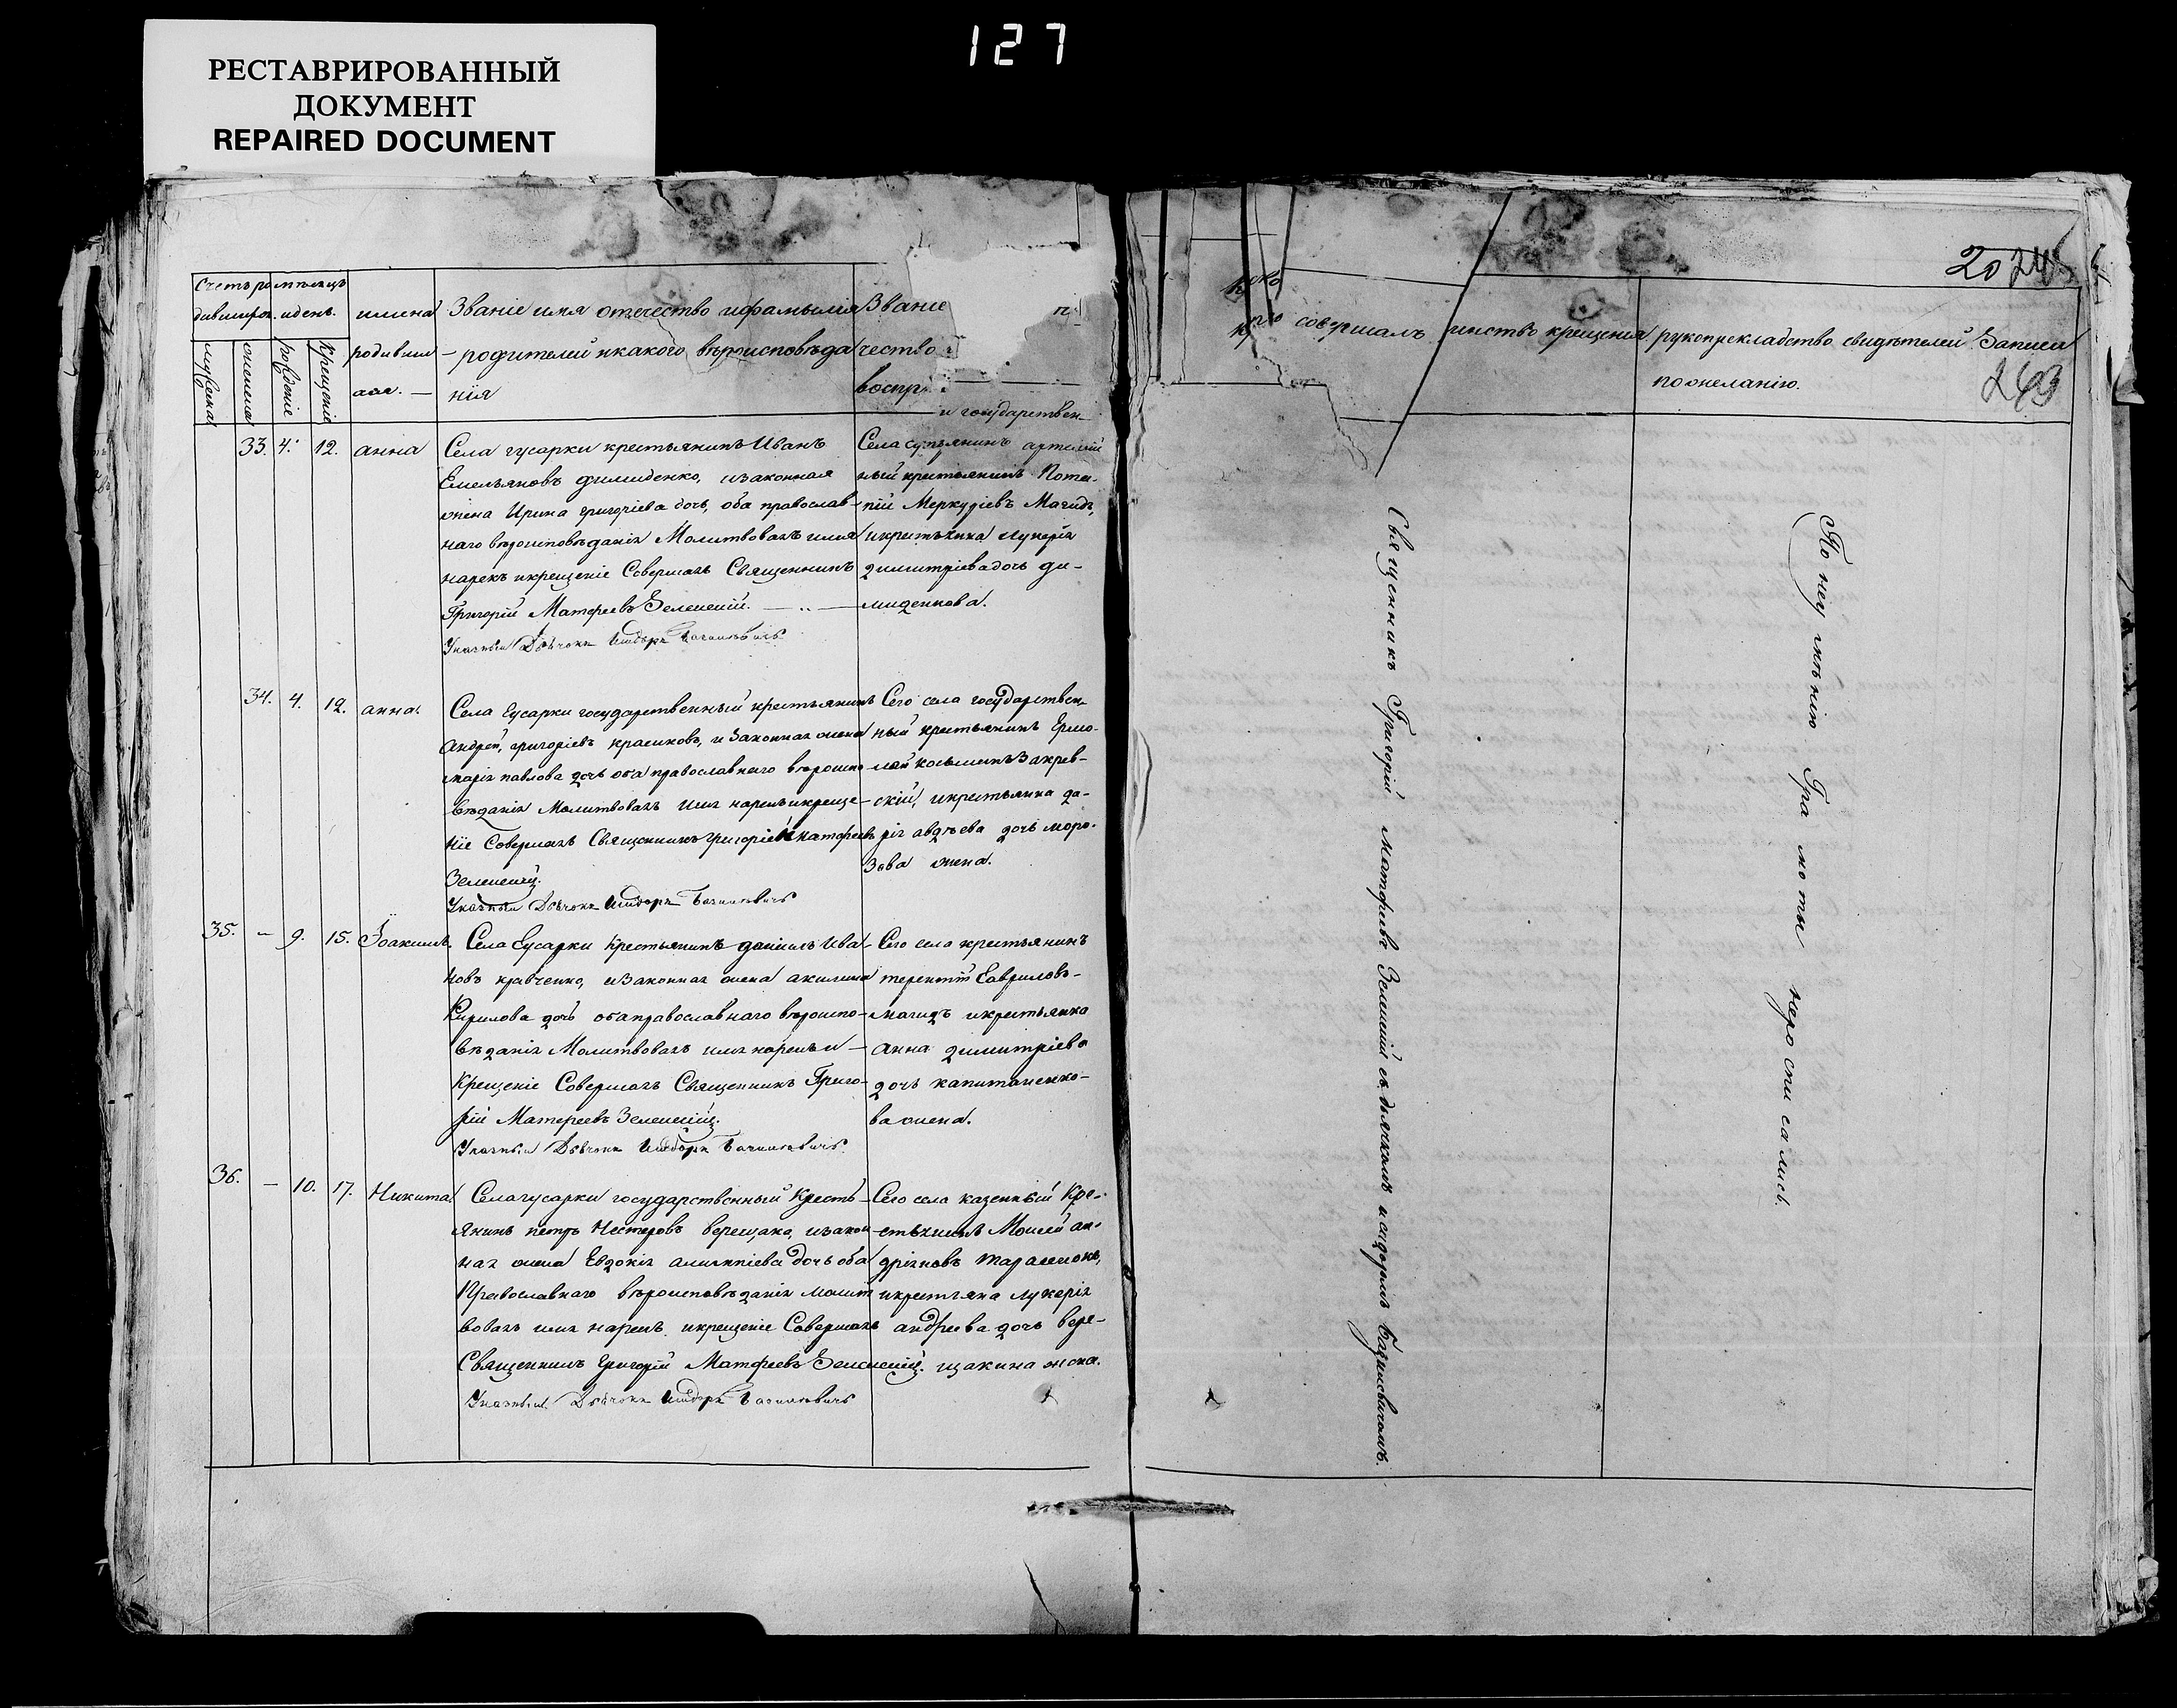 127
РЕСТАВРИРОВАННЫЙ
ДОКУМЕНТ
REPAIRED DOCUMENT
имена
родивши
Званіе имя отечество ифамылія
родителей икакого вѣроисповѣда
нія
Званіе
чество
воспр
рожденіе
крещеніе
33. 4. 12. анна
Села гусарки крестьянинъ Иванъ
Емельяновъ димиденко, изаконная
жена Ирина григоріева дочь, оба православ-
наго вѣроисповѣданія Молитвовалъ имя
нарекъ икрещеніе Совершалъ Священникъ
Григорій Матфеевъ
Указный Дьячокъ Исидоръ
и государствен
ный крестьянинъ Пота-
пій Меркуріевъ Магидъ,
икрестьянка лукерія
димитріева дочь ди-
миденкова.
34. 4. 12. анна
Села Гусарки государственный крестьянинъ
Андрей григоріевъ красиковъ, и Законная жена
марія павлова дочь оба православнаго вѣроиспо-
вѣданія Молитвовалъ имя нарекъ икреще-
ніе Совершалъ Священникъ григорій матфеевъ
Указный Дьячокъ Исидоръ
Сего села государствен
ный крестьянинъ Ермо-
лай косьминъ Закрев-
скій, икрестьянка да-
рія авдѣева дочь моро-
зова жена.
35. - 9. 15. Іоакимъ.
Села Гусарки Крестьянинъ даніилъ Ива-
новъ кравченко, изаконная жена акилина
Кирилова дочь оба православнаго вѣроиспо-
вѣданія Молитвовалъ имя нарекъ и
Крещеніе Совершалъ Священникъ Григо-
рій Матфеевъ
Указный Дьячокъ Исидоръ
Сего села крестьянинъ
терентій Гавриловъ
магидъ икрестьянка
Анна димитріева
дочь капитаненко-
ва жена.
36. - 10. 17. Никита
Села гусарки государственный Кресть-
янинъ петръ Нестеровъ верещака, изакон
ная жена Евдокія алимпіева дочь оба
Православнаго вѣроисповѣданія молит
вовалъ имя нарекъ икрещеніе Совершалъ
Священникъ Григорій Матфеевъ
Указный Дьячокъ Исидоръ
Сего села казенный Кре-
стьянинъ Моисей ан-
дріановъ
икрестьянка лукерія
андреева дочь вере-
щакина жена.
совершалъ
крещенія
рукоприкладство свидѣтелей Записи
по желанію.
20
249
Священникъ Григорій Матфеевъ
съ дьячкомъ исидоромъ
По неу мѣнію Гра мо ты
неро спи сались.